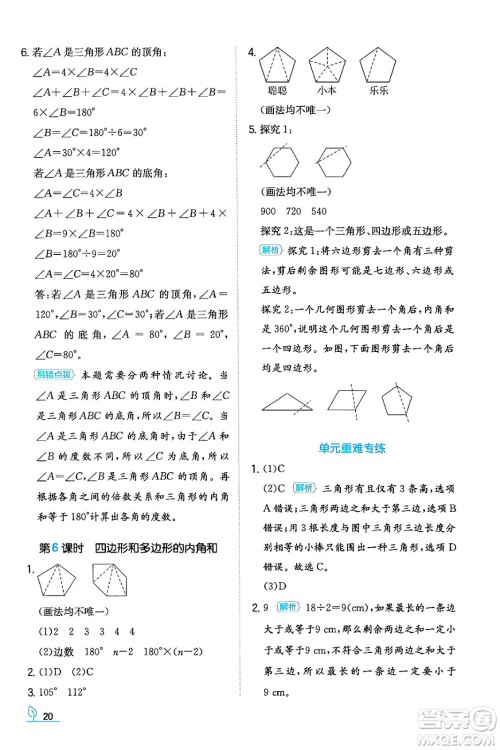 6. 若∠A 是三角形 ABC 的顶角:
∠A=4×∠B=4×∠C
∠A+∠B+∠C=4×∠B+∠B+∠B=
6×∠B=180°
∠B=∠C=180°÷6=30°
∠A=30°×4=120°
若∠A 是三角形 ABC 的底角:
∠A=∠C=4×∠B
∠A+∠B+∠C=4×∠B+∠B+4×∠B=
9×∠B=180°
∠B=180°÷9=20°
∠A=∠C=20°×4=80°
答:若∠A 是三角形 ABC 的顶角,∠A=
120°,∠B=∠C=30°。若∠A 是三角形
ABC 的底角,∠A=80°,∠B=20°,
∠C=80°。
易错点拨 本题需要分两种情况讨论。当
∠A 是三角形 ABC 的顶角时,∠B 和∠C
的度数相等,所以∠B=∠C。当∠A 是三
角形 ABC 的底角时,∠B 是顶角,∠A 和
∠C 是底角,所以∠A=∠C。由于∠A 和
∠B 的度数不同,所以∠A=4×∠B。再
根据各角之间的倍数关系和三角形的内角
和 180°计算出各角的度数。
第 6 课时 四边形和多边形的内角和
1.
(画法均不唯一)
(1)2 2 3 3 4 4
(2)边数 180° n-2 n-2 180°
2. (1)D (2)D
3. 105° 112°
20
4.
聪聪 小本 乐乐
(画法均不唯一)
5. 探究 1:
(画法均不唯一)
900 720 540
探究 2:这是一个三角形、四边形或五边形。
解析 探究 1:将六边形剪去一个角有三种
剪法,剪后剩余图形可能是七边形、六边形或
五边形。
探究 2:一个几何图形剪去一个角后,内角和
是 360°,说明这个几何图形剪去一个角后是
一个四边形。
单元重难专练
1. (1)C
(2)C 解析 三角形有 3 条高,不可能有
4 条高;三角形任意两边之和大于第三边,
所以两根小棒的长度之和大于第三根小棒
长度的小棒才能围成三角形。故选 C。
(3)D
2. 9 解析 18÷2=9(cm),如果最长边大
于或等于 9 cm,那么剩余两边之和小于或
等于 9 cm,因为三角形任意两边之和一定
大于第三边,所以最长边一定要小于
9 cm。